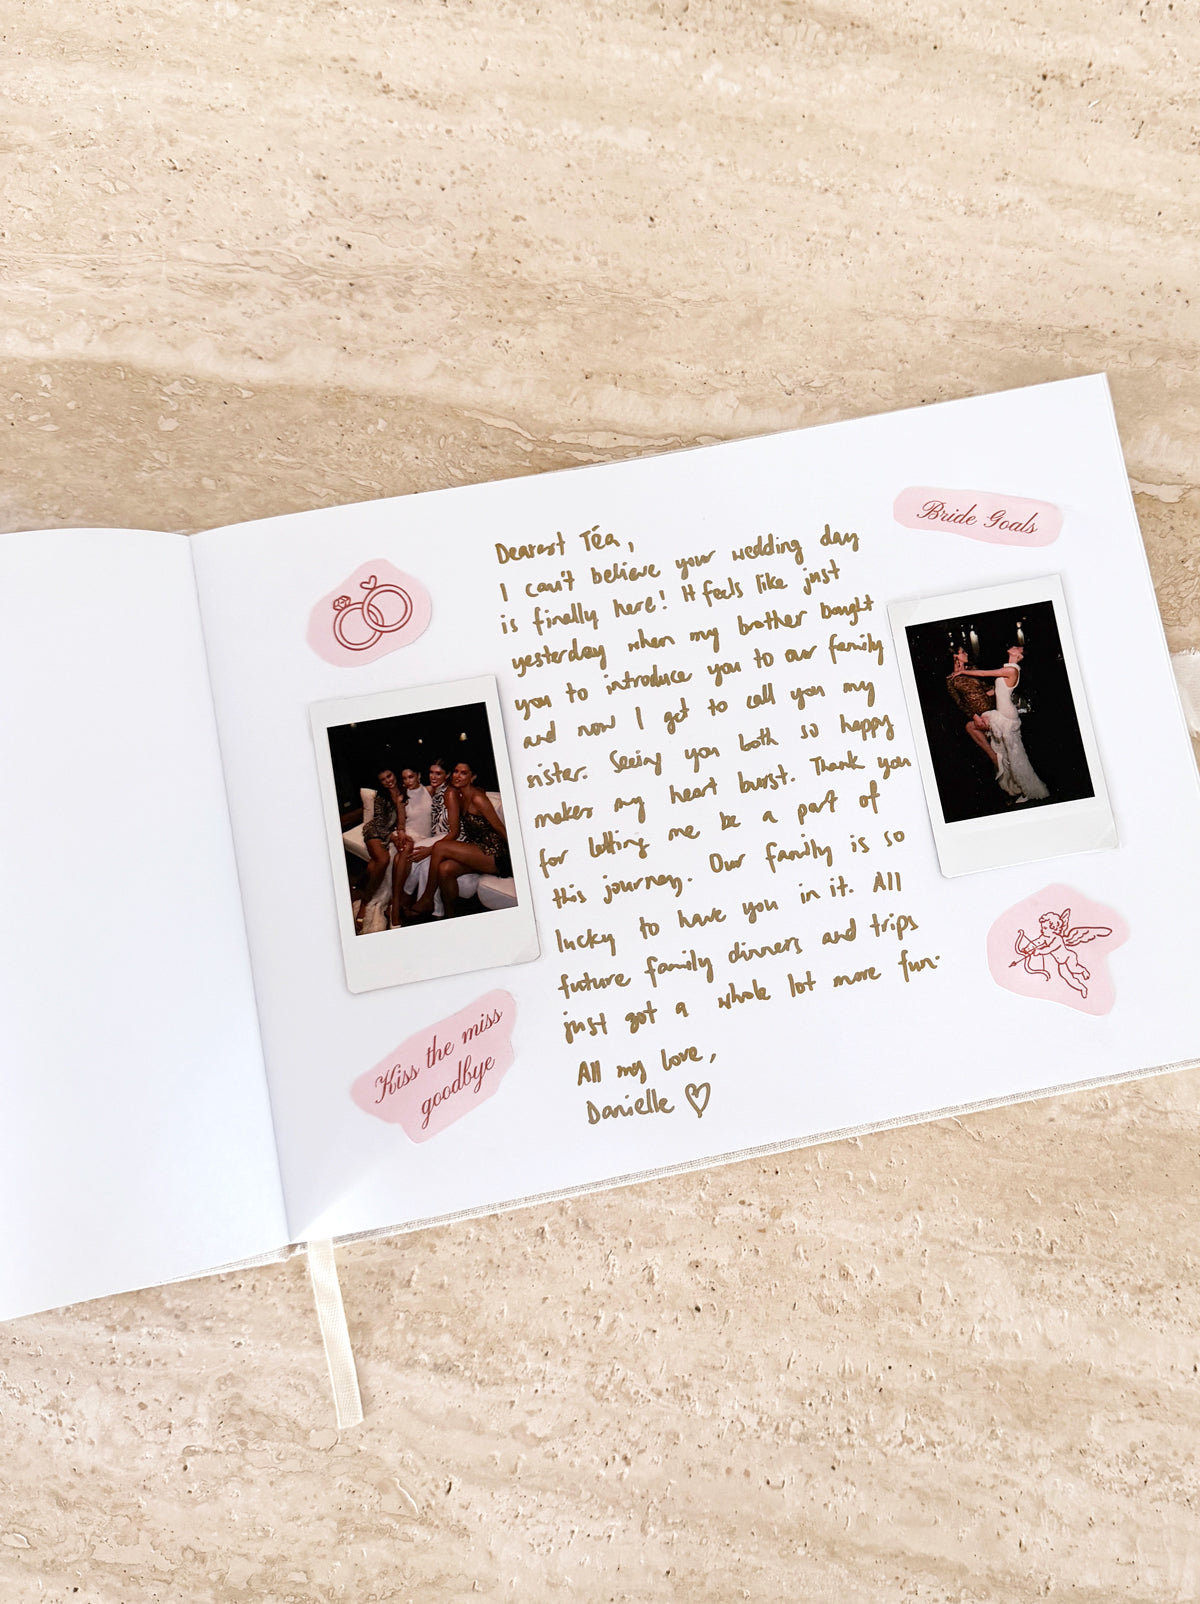 Bride Goals
Dearest Téa,
I can't believe your wedding day
is finally here! It feels like just
yesterday when my brother bought
you to introduce you to our family
and now I get to call you my
sister. Seeing you both so happy
makes my heart burst. Thank you
for letting me be a part of
this journey. Our family is so
lucky to have you in it. All
future family dinners and trips
just got a whole lot more fun.
All my love,
Danielle ♡
Kiss the miss
goodbye